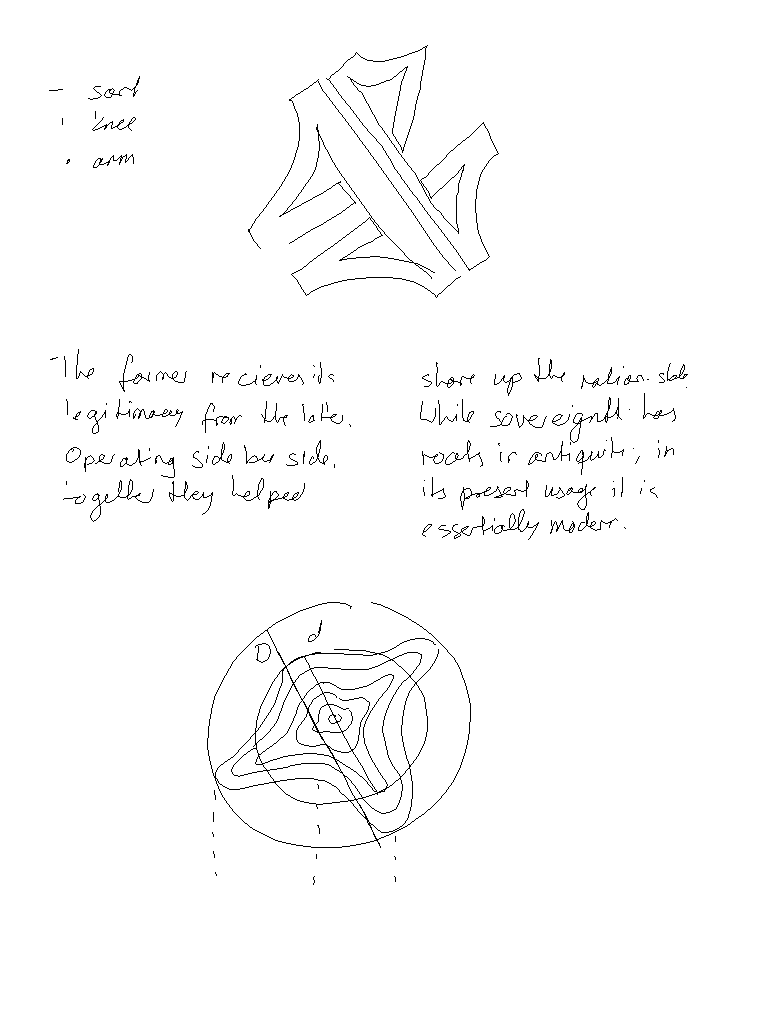 - sort
knee
arm
The former recieves its
legitimacy from the later.
Operating side by side,
together they helped
shore up the nation-state.
While sovereignty has
roots in antiquity, in
its present usage it is
essentially modern.
D
d